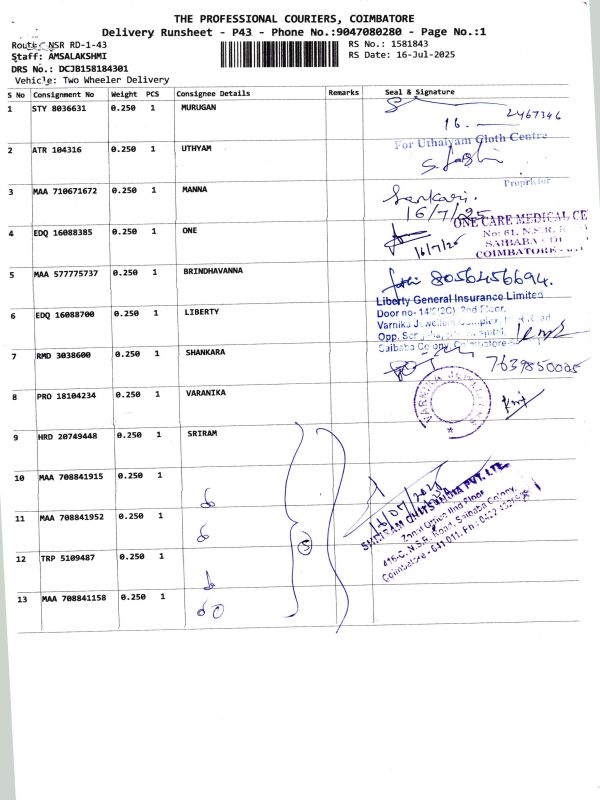 THE PROFESSIONAL COURIERS, COIMBATORE
Delivery Runsheet - P43 - Phone No.:9047080280 - Page No.:1
Route: NSR RD-1-43
RS No.: 1581843
Staff: AMSALAKSHMI
RS Date: 16-Jul-2025
DRS No.: DCJB158184301
Vehicle: Two Wheeler Delivery
S No Consignment No Weight PCS Consignee Details Remarks Seal & Signature
1 STY 8036631 0.250 1 MURUGAN
16. 2467346
2 ATR 104316 0.250 1 UTHYAM
For Uthaiyam Cloth Centre
Proprietor
3 MAA 710671672 0.250 1 MANNA
Sankari.
16/7/25
4 EDQ 16088385 0.250 1 ONE
ONE CARE MEDICAL CE
No: 61, N.S.R. R
SAIBABA COL
COIMBATORE
16/7/25
5 MAA 577775737 0.250 1 BRINDHAVANNA
8056456694.
6 EDQ 16088700 0.250 1 LIBERTY
Liberty General Insurance Limited
Door no- 2nd Floor,
Varnika Jewellers Complex, Road
Opp. Hospital,
Saibaba Colony, Coimbatore
7 RMD 3038600 0.250 1 SHANKARA
7639850005
8 PRO 18104234 0.250 1 VARANIKA
VARNIKA JEWELLERS
9 HRD 20749448 0.250 1 SRIRAM
10 MAA 708841915 0.250 1
11 MAA 708841952 0.250 1
12 TRP 5109487 0.250 1
13 MAA 708841158 0.250 1
5
SHRIRAM CHITS INDIA PVT. LTD.
Zonal Office IInd Floor
415-C, N.S.R. Road, Saibaba Colony,
Coimbatore - 641 011. Ph : 0422